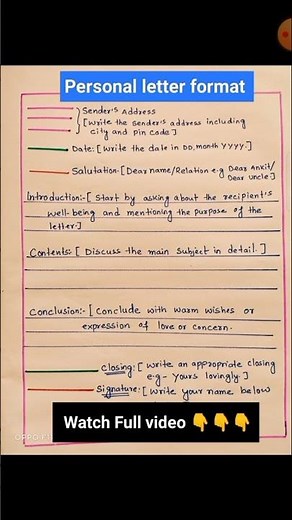 Personal letter format
Sender's Address
[Write the sender's address including
city and Pin code]
Date: [Write the date in DD, month YYYY.]
Salutation: [Dear name/Relation e.g Dear Ankit/
Dear uncle]
Introduction:- [Start by asking about the recipient's
well-being and mentioning the purpose of the
letter.]
Contents: [Discuss the main subject in detail.]
Conclusion:- [Conclude with warm wishes or
expression of love or concern.
closing: [Write an appropriate closing
e.g- yours lovingly.]
Signature: [Write your name below
Watch Full video 👇👇👇
OPPO